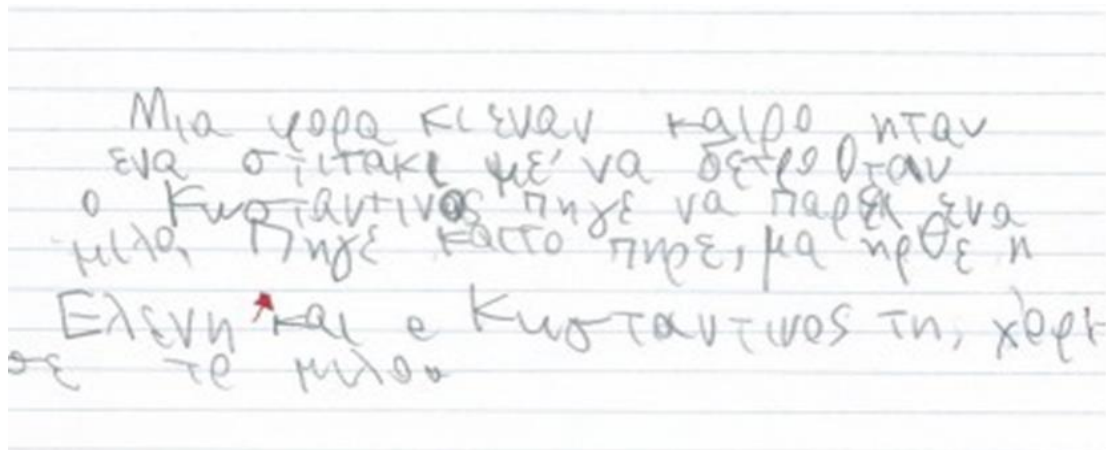 Μια φορα κι εναν καιρο ηταν
ενα σπιτακι με' να δετρο Οταν
ο Κωσταντινος πηγε να παρει ενα
μιλο, Πηγε καιτο πηρε, μα ηρθε η
Ελενη και ο Κωσταντινος τη, χορι
σε το μιλο.